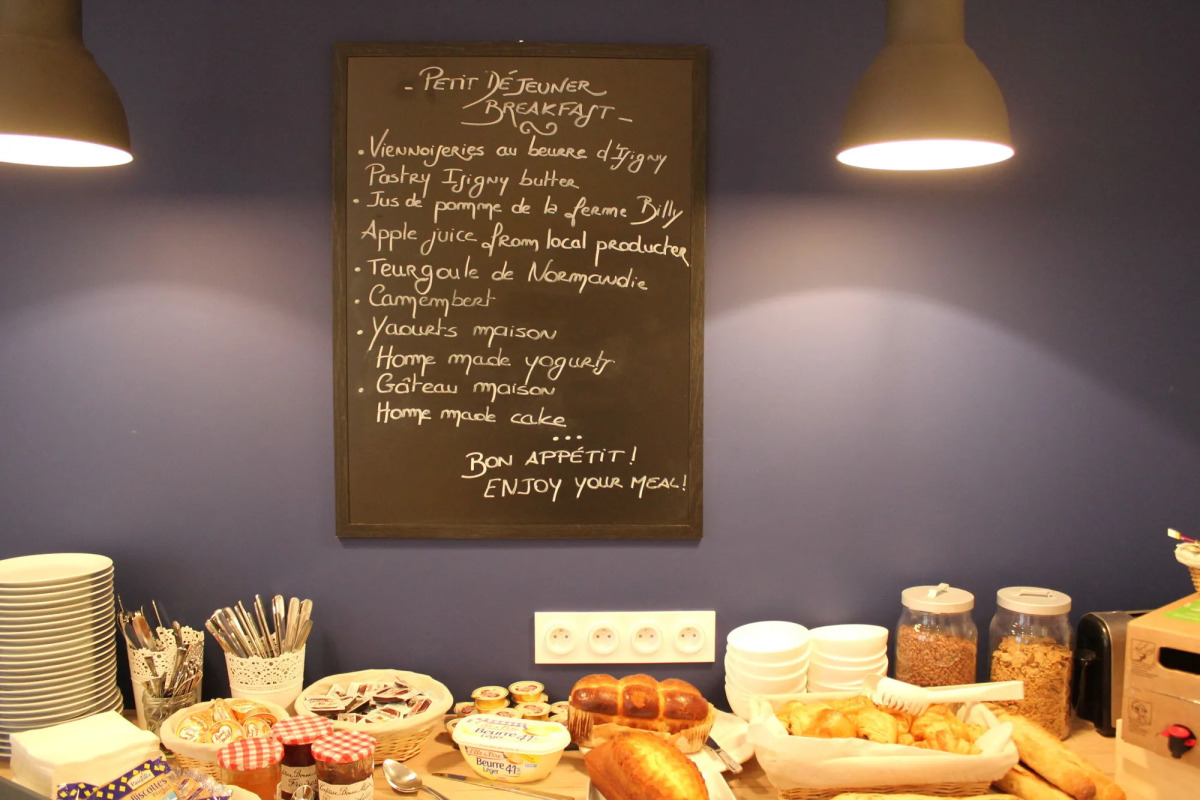 - PETIT DÉJEUNER
BREAKFAST -
. Viennoiseries au beurre d'Isigny
Pastry Isigny butter
. Jus de pomme de la ferme Billy
Apple juice from local producter
. Teurgoule de Normandie
. Camembert
. Yaourts maison
Home made yogurts
. Gâteau maison
Home made cake
...
BON APPÉTIT !
ENJOY YOUR MEAL!
Beurre
Léger 41
Biscottes